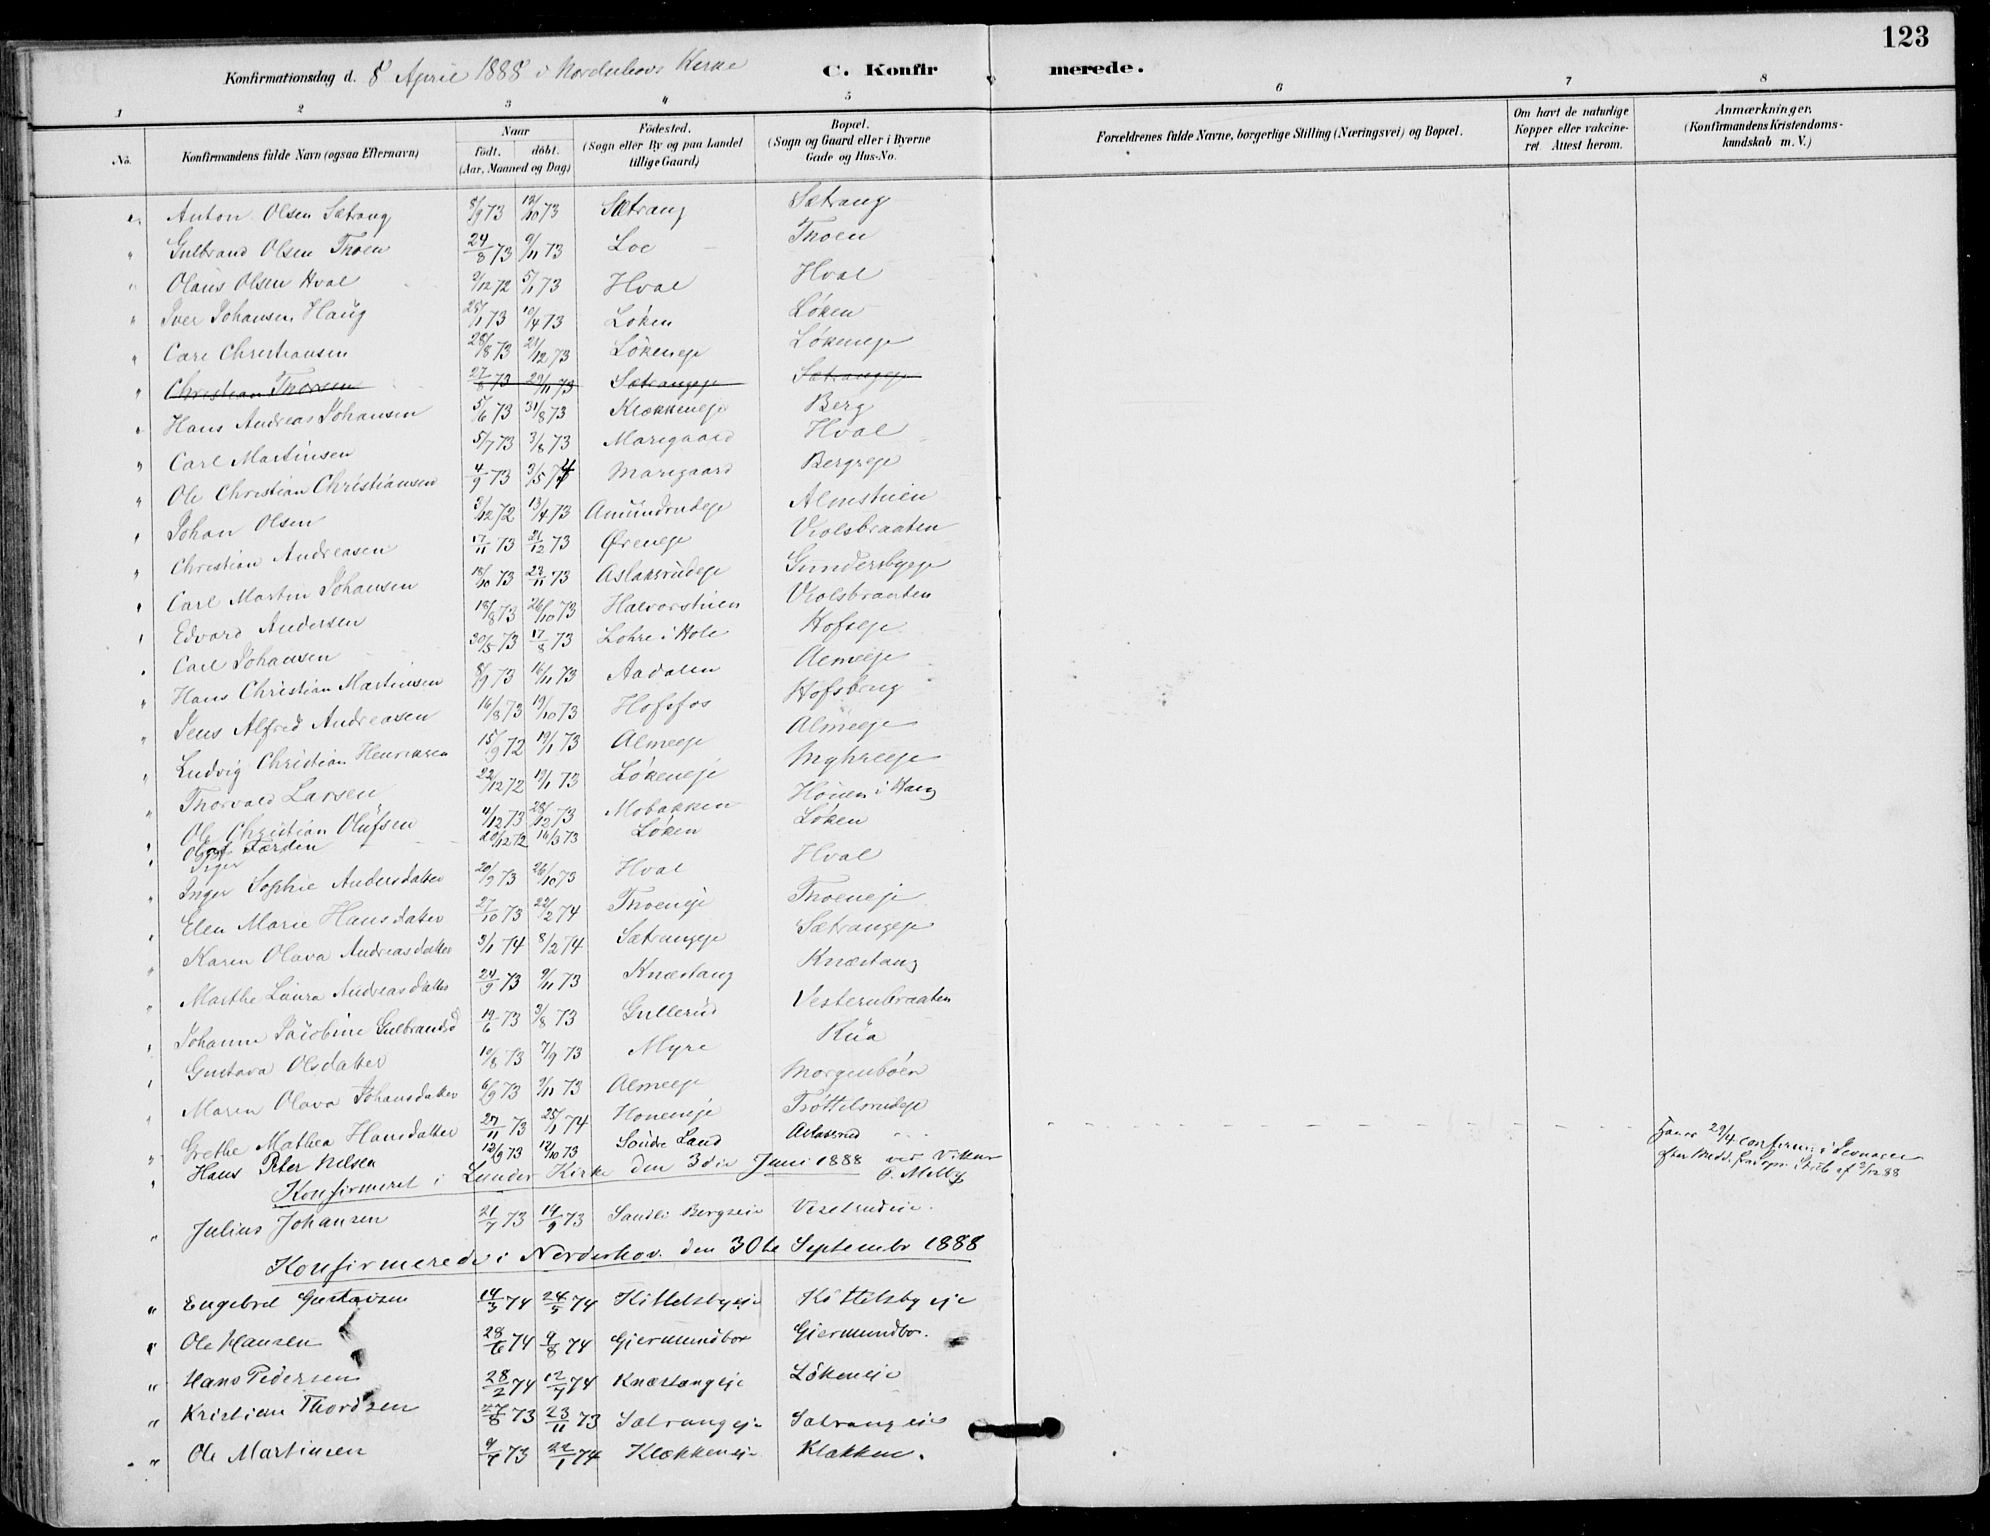 123
Konfirmationsdag d. 8 April 1888 i Norderhovs Kirke C. Konfirmerede.
1 2 3 4 5 6 7 8
No. Konfirmandens fulde Navn (ogsaa Efternavn) Naar født. døbt. (Aar, Maaned og Dag) Fødested. (Sogn eller By og paa Landet tillige Gaard) Bopæl. (Sogn og Gaard eller i Byerne Gade og Hus-No. Forældrenes fulde Navne, borgerlige Stilling (Næringsvei) og Bopæl. Om havt de naturlige Kopper eller vakcineret. Attest herom. Anmærkninger. (Konfirmandens Kristendomskundskab m. V.)
" Anton Olsen Sætrang 8/9 73 12/10 73 Sætrang Sætrang
" Gulbrand Olsen Thoen 24/8 73 9/11 73 Loe Thoen
" Olaus Olsen Hval 9/12 72 5/1 73 Hval Hval
" Iver Johansen Haug 25/1 73 10/4 73 Løken Løken
" Carl Christiansen 28/8 73 21/12 73 Løkeneje Løkeneje
" Christian Thorsen 27/8 73 29/11 73 Sætrangeje Sætrangeje
" Hans Andreas Johansen 5/6 73 31/8 73 Klækkeneje Berg
" Carl Martinsen 5/7 73 3/8 73 Marigaard Hval
" Ole Christian Christiansen 4/9 73 3/5 74 Marigaard Bergseje
" Johan Olsen 3/12 72 13/4 73 Amundrudeje Almstuen
" Christian Andreasen 17/11 73 21/12 73 Øreneje Violsbraaten
" Carl Martin Johansen 18/10 73 23/11 73 Aslaksrudeje Gundersbyeje
" Edvard Andersen 18/8 73 26/10 73 Halvorstuen Violsbraaten
" Carl Johansen 30/5 73 17/8 73 Lohre i Hole Hofseje
" Hans Christian Martinsen 8/9 73 16/11 73 Aadalen Almeeje
" Jens Alfred Andreasen 16/8 73 19/10 73 Hofsfos Hofsbrug
" Ludvig Christian Henriksen 15/9 72 19/1 73 Almeeje Almeeje
" Thorvald Larsen 22/12 72 19/1 73 Løkeneje Myhreeje
" Ole Christian Olufsen 4/12 73 28/12 73 Mobakken Hønen i Haug
" Olaf Færden 20/12 72 16/3 73 Løken Løken
" Inger Sophie Andersdatter 20/9 73 26/10 73 Hval Hval
" Elen Marie Hansdatter 27/10 73 22/2 74 Thoeneje Thoeneje
" Karen Olava Andreasdatter 3/1 74 8/2 74 Sætrangeje Sætrangeje
" Marthe Laura Andreasdatter 24/9 73 9/11 73 Knæstang Knæstang
" Johanne Jacobine Gulbrandsd 19/6 73 3/8 73 Gullerud Vesternbraaten
" Gustava Olsdatter 10/8 73 7/9 73 Myre Rua
" Maren Olava Johansdatter 6/9 73 9/11 73 Almeeje Morgenbøen
" Grethe Mathea Hansdatter 27/11 73 25/1 74 Høneneje Trøttelsrudeje
" Hans Peter Nilsen 12/9 73 12/10 73 Søndre Land Aslaksrud
29/4 confirm. i
Konfirmeret i Lunder Kirke den 3die Juni 1888 ved Vikar O. Melby
" Julius Johansen 21/7 73 14/9 73 Sandli Bergseie
Konfirmerede i Norderhov. den 30te September 1888
" Engebret Gustavsen 14/3 74 24/5 74 Kittelsbyeje Kittelsby eje
" Ole Hansen 28/6 74 9/8 74 Gjermundbo Gjermundbo.
" Hans Pedersen 28/2 74 12/4 74 Knæstangeje Løkeneje
" Kristian Thordsen 27/8 73 23/11 73 Sætrangeje Sætrangeje
" Ole Martinsen 9/7 73 22/1 74 Klækkeneje Klækken.